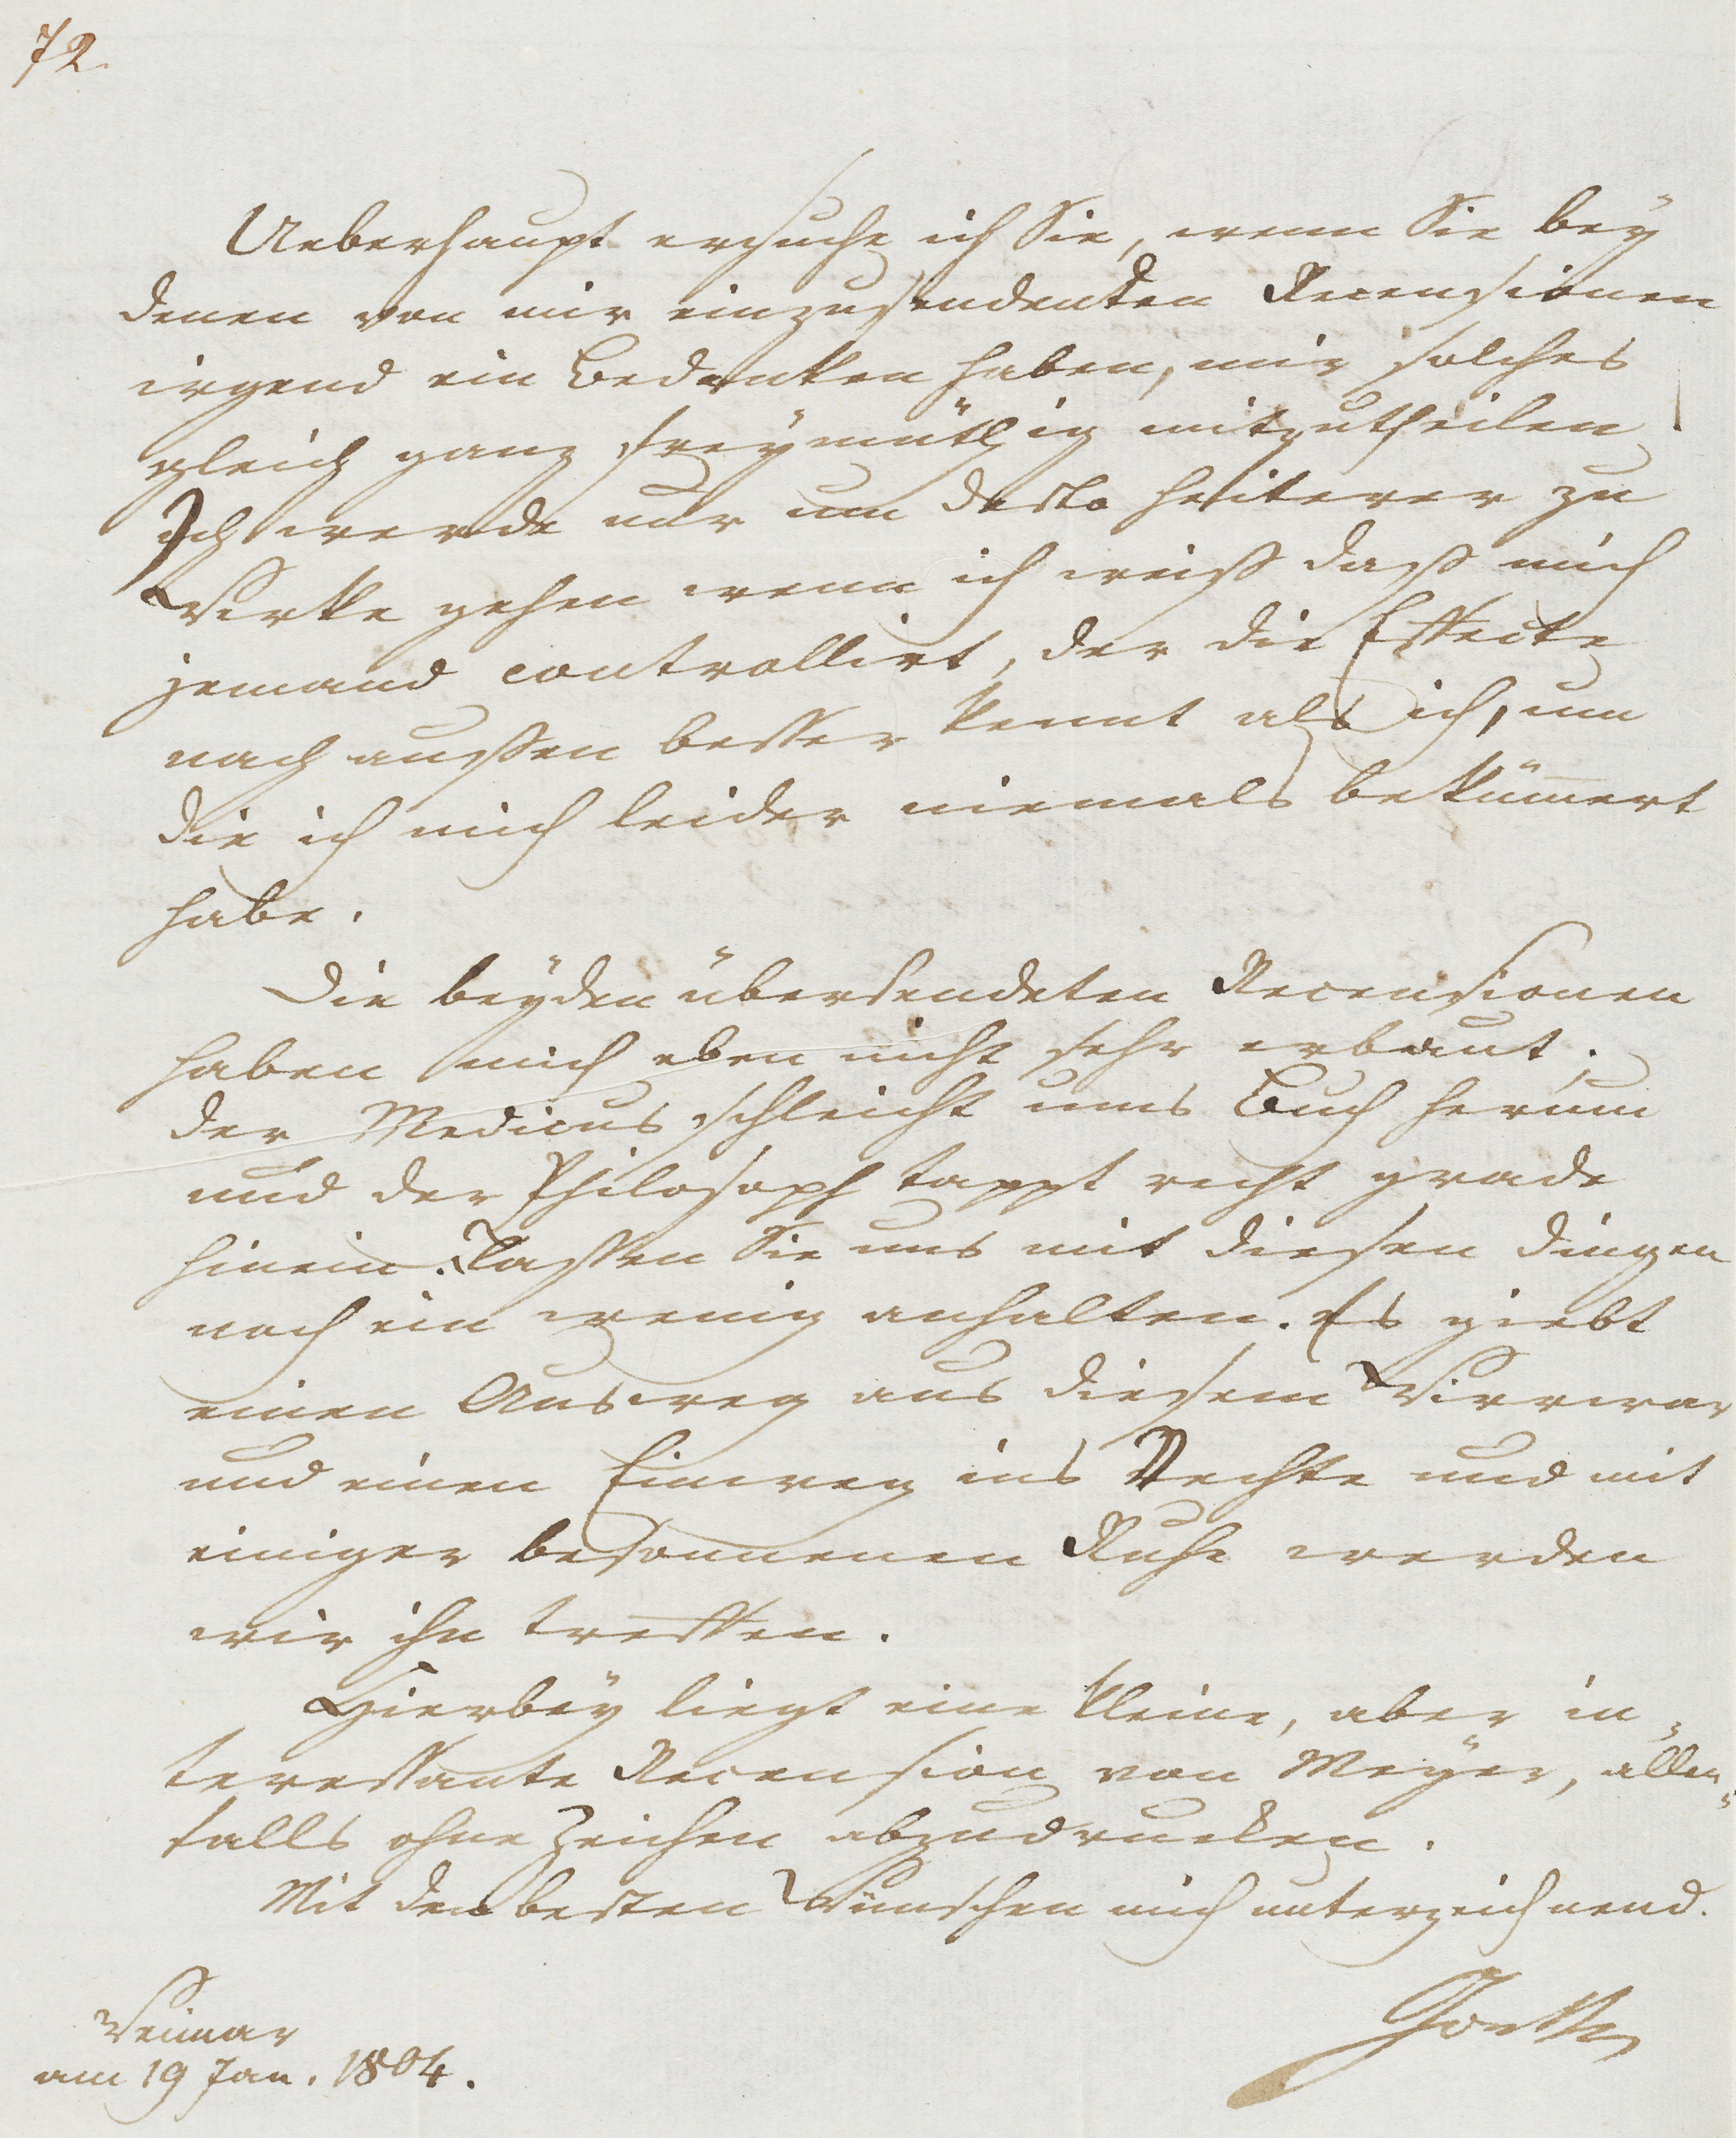 72.
Ueberhaupt ersuche ich Sie, wenn Sie bey
denen von mir einzusendenden Recensionen
irgend ein Bedenken haben, mir solches
gleich ganz freymüthig mitzutheilen.
Ich werde nur um desto heiterer zu
Werke gehen wenn ich weiß daß mich
jemand controllirt, der die Effecte
nach außen besser kennt als ich, um
die ich mich leider niemals bekümert
habe.
Die beyden übersendeten Recensionen
haben mich eben nicht sehr erbaut;
der Medicus schleicht ums Buch herum
und der Philosoph tappt recht grade
hinein. Lassen Sie uns mit diesen Dingen
noch ein wenig anhalten. Es giebt
einen Ausweg aus diesem Wirrwar
und einen Einweg ins Rechte und mit
einiger besonnenen Ruhe werden
wir ihn treffen.
Hierbey liegt eine kleine, aber in-
teressante Recension von Meyer, allen-
falls ohne Zeichen abzudrucken.
Mit den besten Wünschen mich unterzeichnend.
Goethe
Weimar
am 19 Jan. 1804.